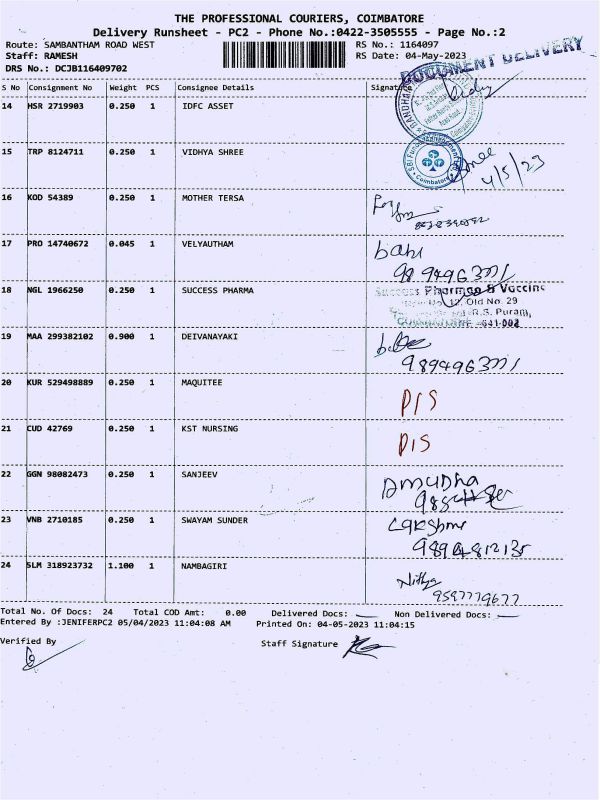 THE PROFESSIONAL COURIERS, COIMBATORE
Delivery Runsheet - PC2 - Phone No.:0422-3505555 - Page No.:2
Route: SAMBANTHAM ROAD WEST RS No.: 1164097
Staff: RAMESH RS Date: 04-May-2023
DRS No.: DCJB116409702
DOCUMENT DELIVERY
S No Consignment No Weight PCS Consignee Details Signature
14 HSR 2719903 0.250 1 IDFC ASSET
15 TRP 8124711 0.250 1 VIDHYA SHREE
4/5/23
16 KOD 54389 0.250 1 MOTHER TERSA
17 PRO 14740672 0.045 1 VELYAUTHAM
18 NGL 1966250 0.250 1 SUCCESS PHARMA
Success Pharma & Vaccine
No 12, Old No. 29
R.S. Puram,
COIMBATORE -641 002
19 MAA 299382102 0.900 1 DEIVANAYAKI
9894963771
20 KUR 529498889 0.250 1 MAQUITEE
D/S
21 CUD 42769 0.250 1 KST NURSING
D/S
22 GGN 98082473 0.250 1 SANJEEV
Amudha
23 VNB 2710185 0.250 1 SWAYAM SUNDER
24 SLM 318923732 1.100 1 NAMBAGIRI
Nithya
9597779677
Total No. Of Docs: 24 Total COD Amt: 0.00 Delivered Docs: Non Delivered Docs:
Entered By :JENIFERPC2 05/04/2023 11:04:08 AM Printed On: 04-05-2023 11:04:15
Verified By Staff Signature